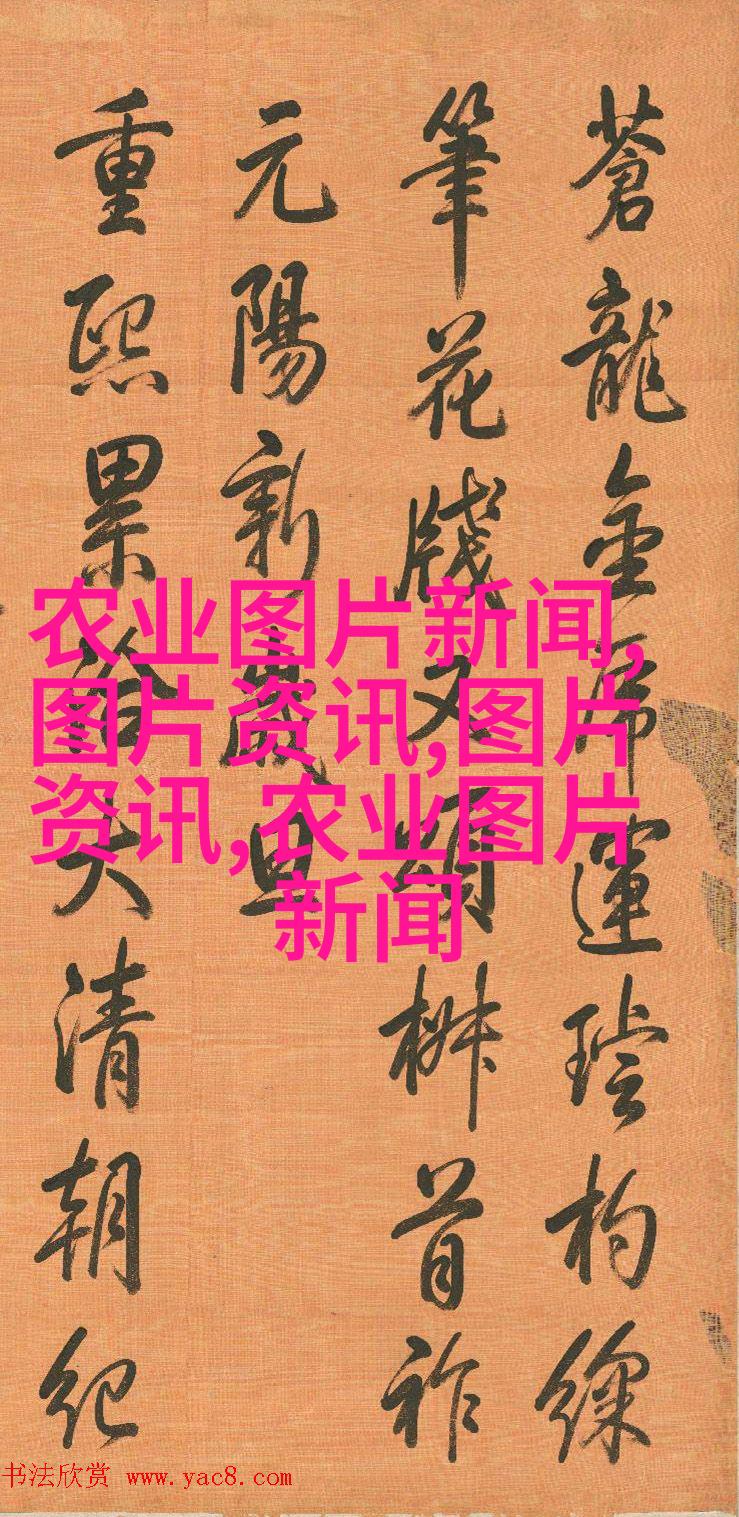 蒼龍金虎運璇杓綵
筆花牋又頌椒首祚
元陽新歲旦
重熙累洽大清朝紀
农业图片新闻,
图片资讯,图片
资讯,农业图片
新闻
书法欣赏 www.yac8.com